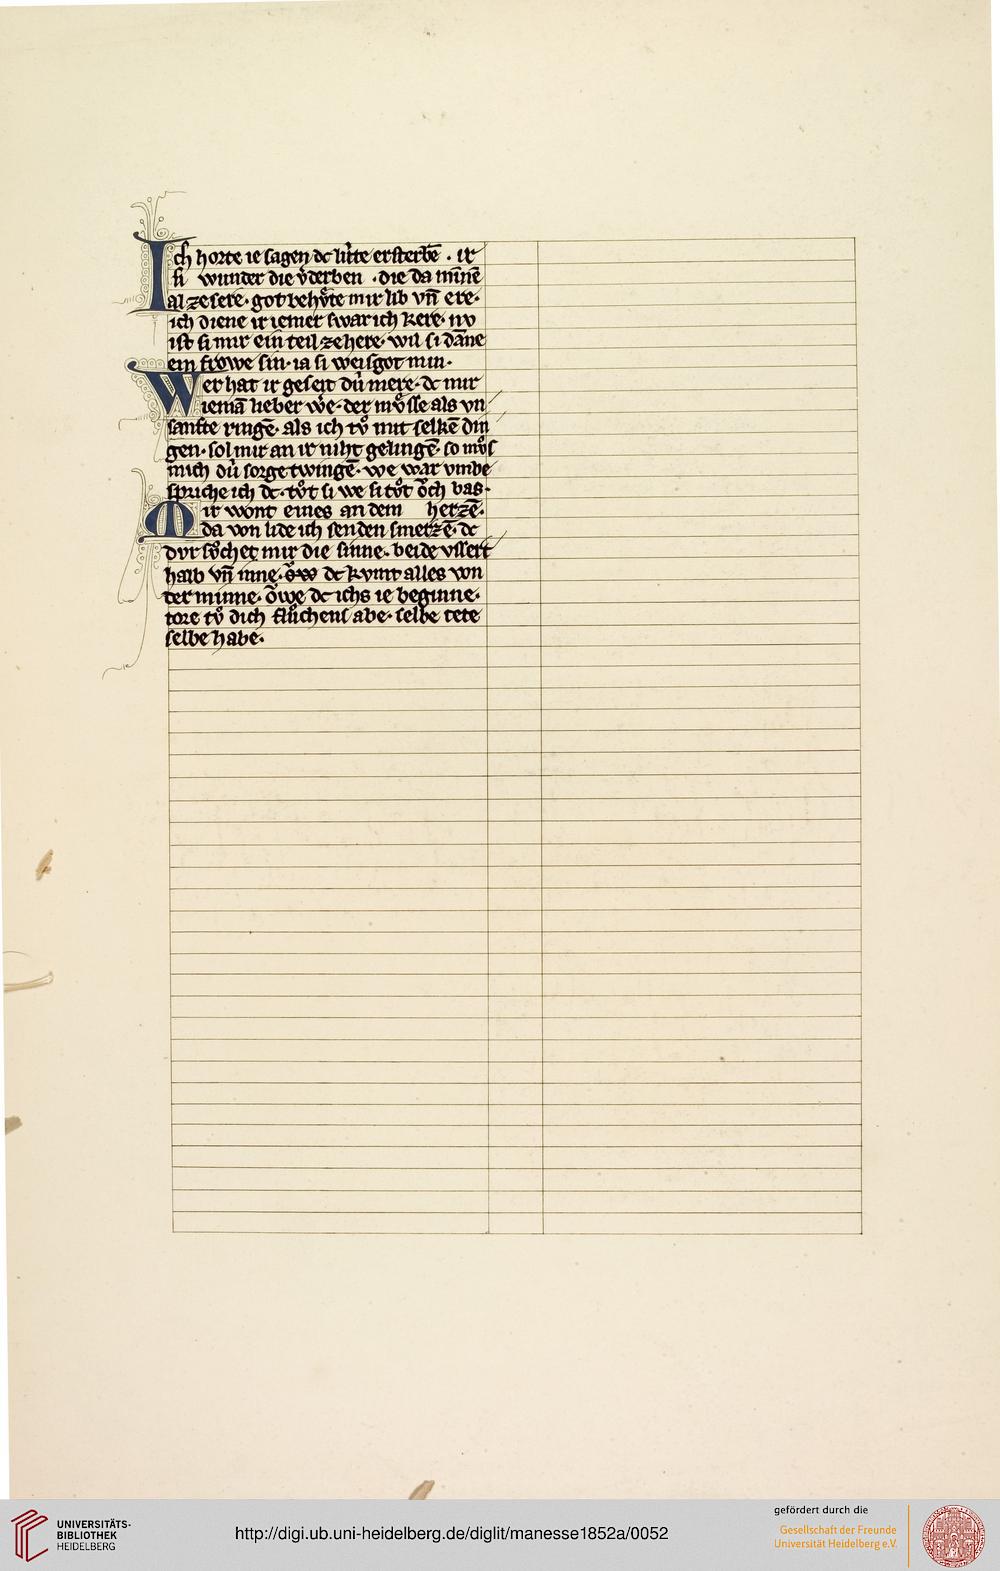 Ich horte ie sagen dc lv̍te ersterbē . ir
si wunder die v̍derben . die da mīnē
al ze sere · got behvͤte mir lib vn̄ ere ·
ich diene ir iemer swar ich kere · nv
ist si mir ein teil ze here · wil si dāne
ein frowe sin · ia si weisgot min ·
Wer hat ir geseit dv̍ mere · dc mir
iemā lieber wͤe · der mvͤsse als vn
sanfte ringē · als ich tvͦ mit selkē din
gen · sol mir an ir niht gelingē · so mvͦs
mich dv̍ sorge twingē · we war vmbe
spriche ich dc · tvͦt si we si tvͦt och bas ·
Mir wont eines an dem herzē ·
da von lide ich senden smerzē · dc
dvr svͦchet mir die sinne · beide vssert
halb vn̄ inne · owe dc kvmt alles von
der minne · owe dc ichs ie beginne ·
tore tvͦ dich flvͦchens abe · selbe tete
selbe habe ·
UNIVERSITÄTS-
BIBLIOTHEK
HEIDELBERG
http://digi.ub.uni-heidelberg.de/diglit/manesse1852a/0052
gefördert durch die
Gesellschaft der Freunde
Universität Heidelberg e.V.